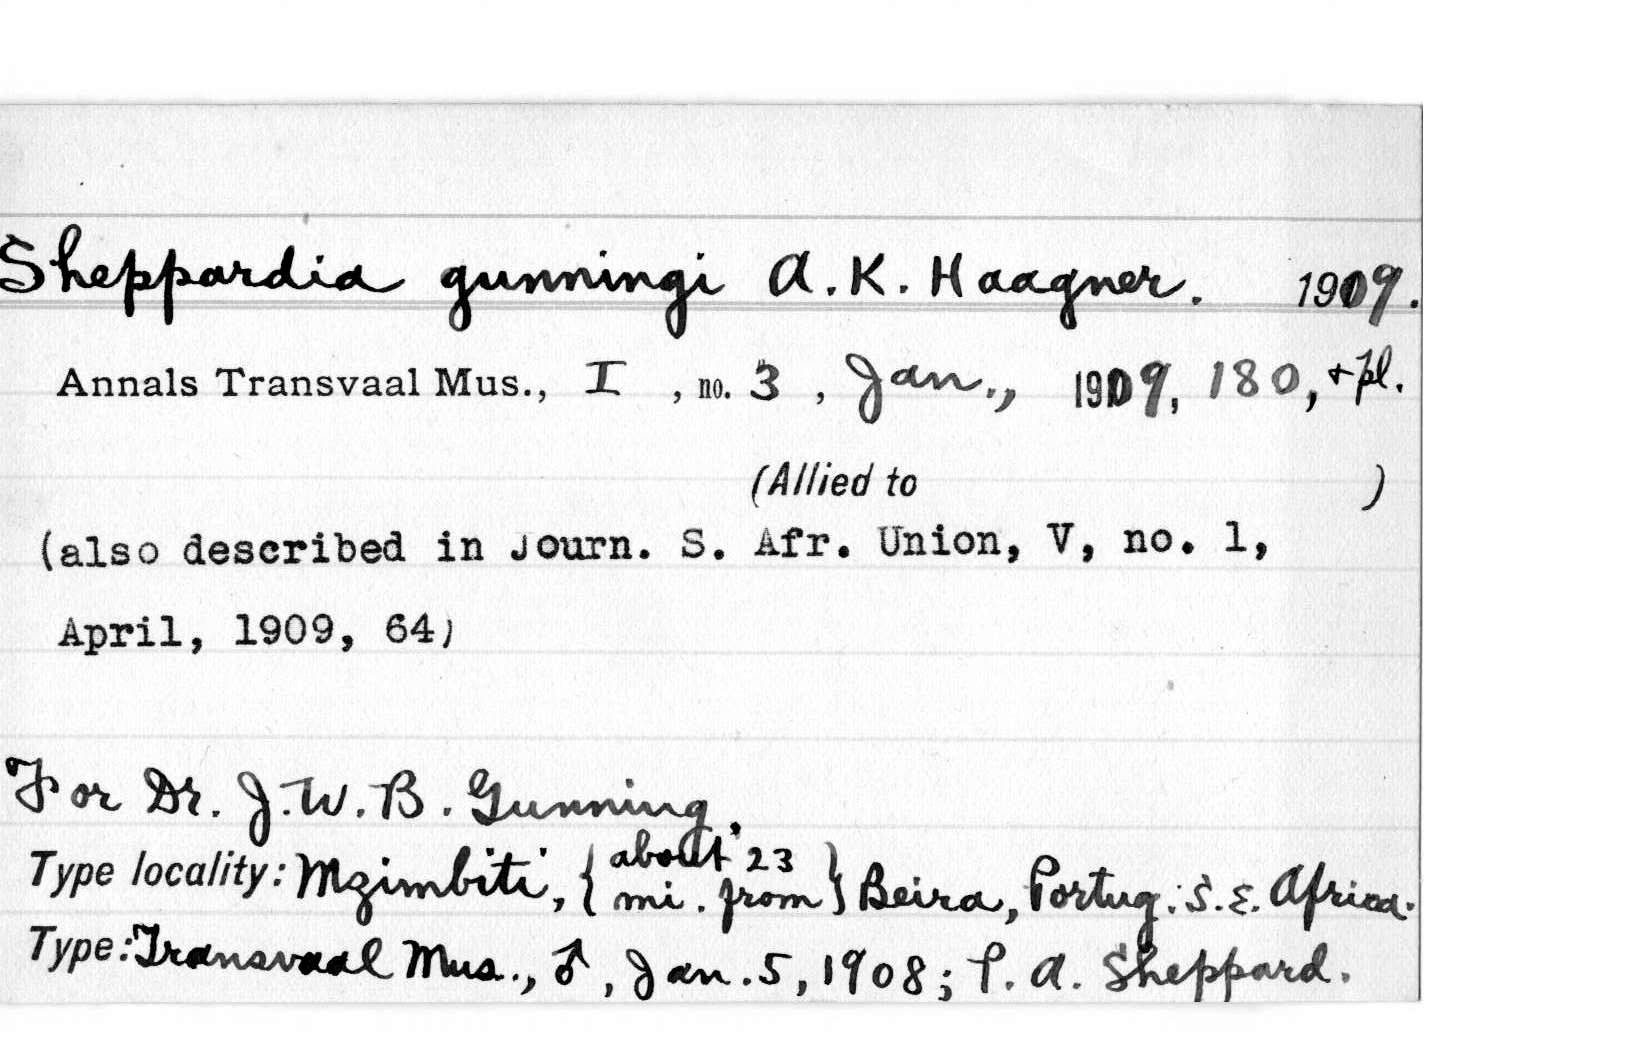 Sheppardia gunningi A. K. Haagner. 1909.
Annals Transvaal Mus., I , no. 3 , Jan., 1909, 180, + pl.
(Allied to )
(also described in Journ. S. Afr. Union, V, no. 1,
April, 1909, 64)
For Dr. J. W. B. Gunning.
Type locality: Mzimbiti, { about 23 mi. from } Beira, Portug. S. E. Africa.
Type: Transvaal Mus., ♂, Jan. 5, 1908; P. A. Sheppard.